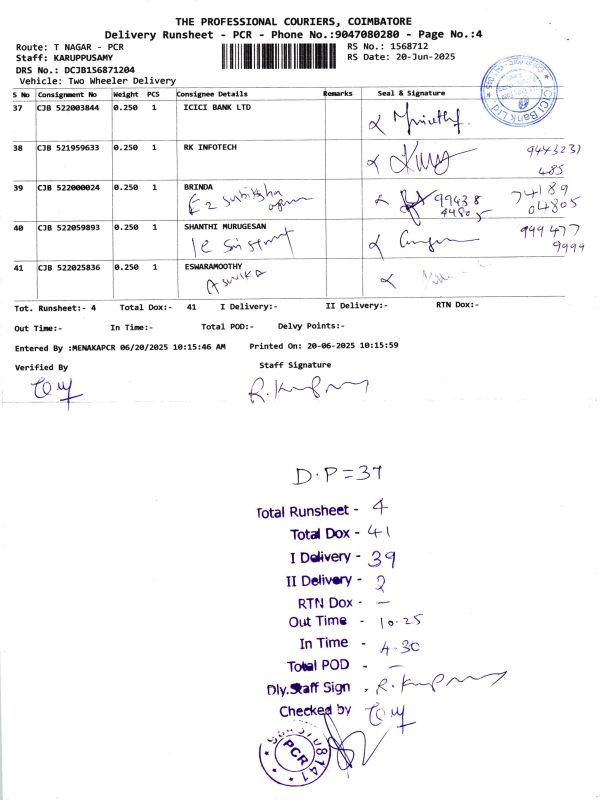 THE PROFESSIONAL COURIERS, COIMBATORE
Delivery Runsheet - PCR - Phone No.:9047080280 - Page No.:4
Route: T NAGAR - PCR
RS No.: 1568712
Staff: KARUPPUSAMY
RS Date: 20-Jun-2025
DRS No.: DCJB156871204
Vehicle: Two Wheeler Delivery
S No Consignment No Weight PCS Consignee Details Remarks Seal & Signature
37 CJB 522003844 0.250 1 ICICI BANK LTD
ICICI Bank Ltd.
38 CJB 521959633 0.250 1 RK INFOTECH
9443231
485
39 CJB 522000024 0.250 1 BRINDA
E2 99438 74189
44805 04805
40 CJB 522059893 0.250 1 SHANTHI MURUGESAN
999477
9999
41 CJB 522025836 0.250 1 ESWARAMOOTHY
Tot. Runsheet:- 4 Total Dox:- 41 I Delivery:- II Delivery:- RTN Dox:-
Out Time:- In Time:- Total POD:- Delvy Points:-
Entered By :MENAKAPCR 06/20/2025 10:15:46 AM Printed On: 20-06-2025 10:15:59
Verified By Staff Signature
D.P=37
Total Runsheet - 4
Total Dox - 41
I Delivery - 39
II Delivery - 2
RTN Dox - —
Out Time - 10.25
In Time - 4.30
Total POD - —
Dly.Staff Sign
Checked by
PCR